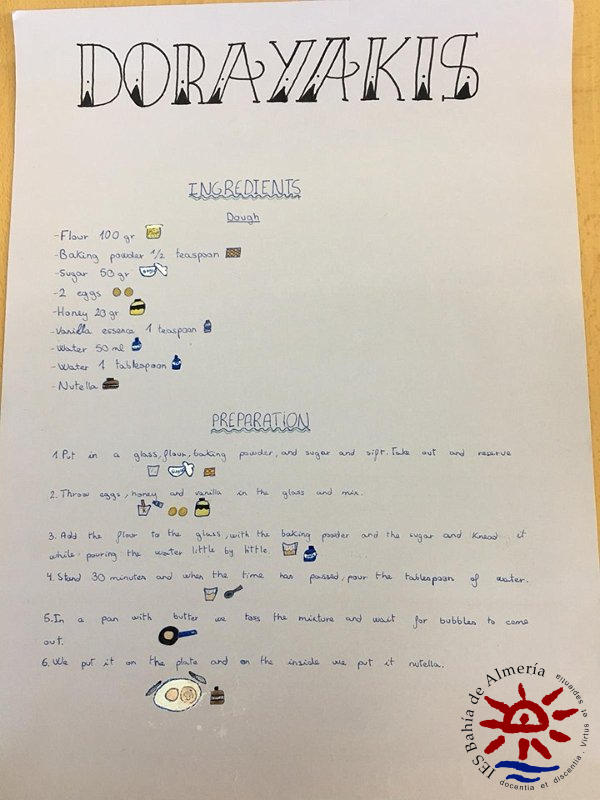 DORAYAKIS
INGREDIENTS
Dough
-Flour 100 gr
-Baking powder 1/2 teaspoon
-Sugar 50 gr
-2 eggs
-Honey 20 gr
-Vanilla essence 1 teaspoon
-Water 50 ml
-Water 1 tablespoon
-Nutella
PREPARATION
1. Put in a glass, flour, baking powder, and sugar and sift. Take out and reserve
2. Throw eggs, honey and vanilla in the glass and mix.
3. Add the flour to the glass, with the baking powder and the sugar and knead it
while pouring the water little by little.
4. Stand 30 minutes and when the time has passed, pour the tablespoon of water.
5. In a pan with butter we toss the mixture and wait for bubbles to come
out.
6. We put it on the plate and on the inside we put it nutella.
IES Bahía de Almería
docentia et discentia · Virtus et sapientia